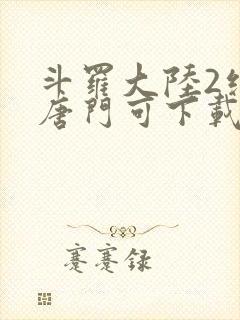 斗羅大陸2
唐門可下載
蹇蹇録